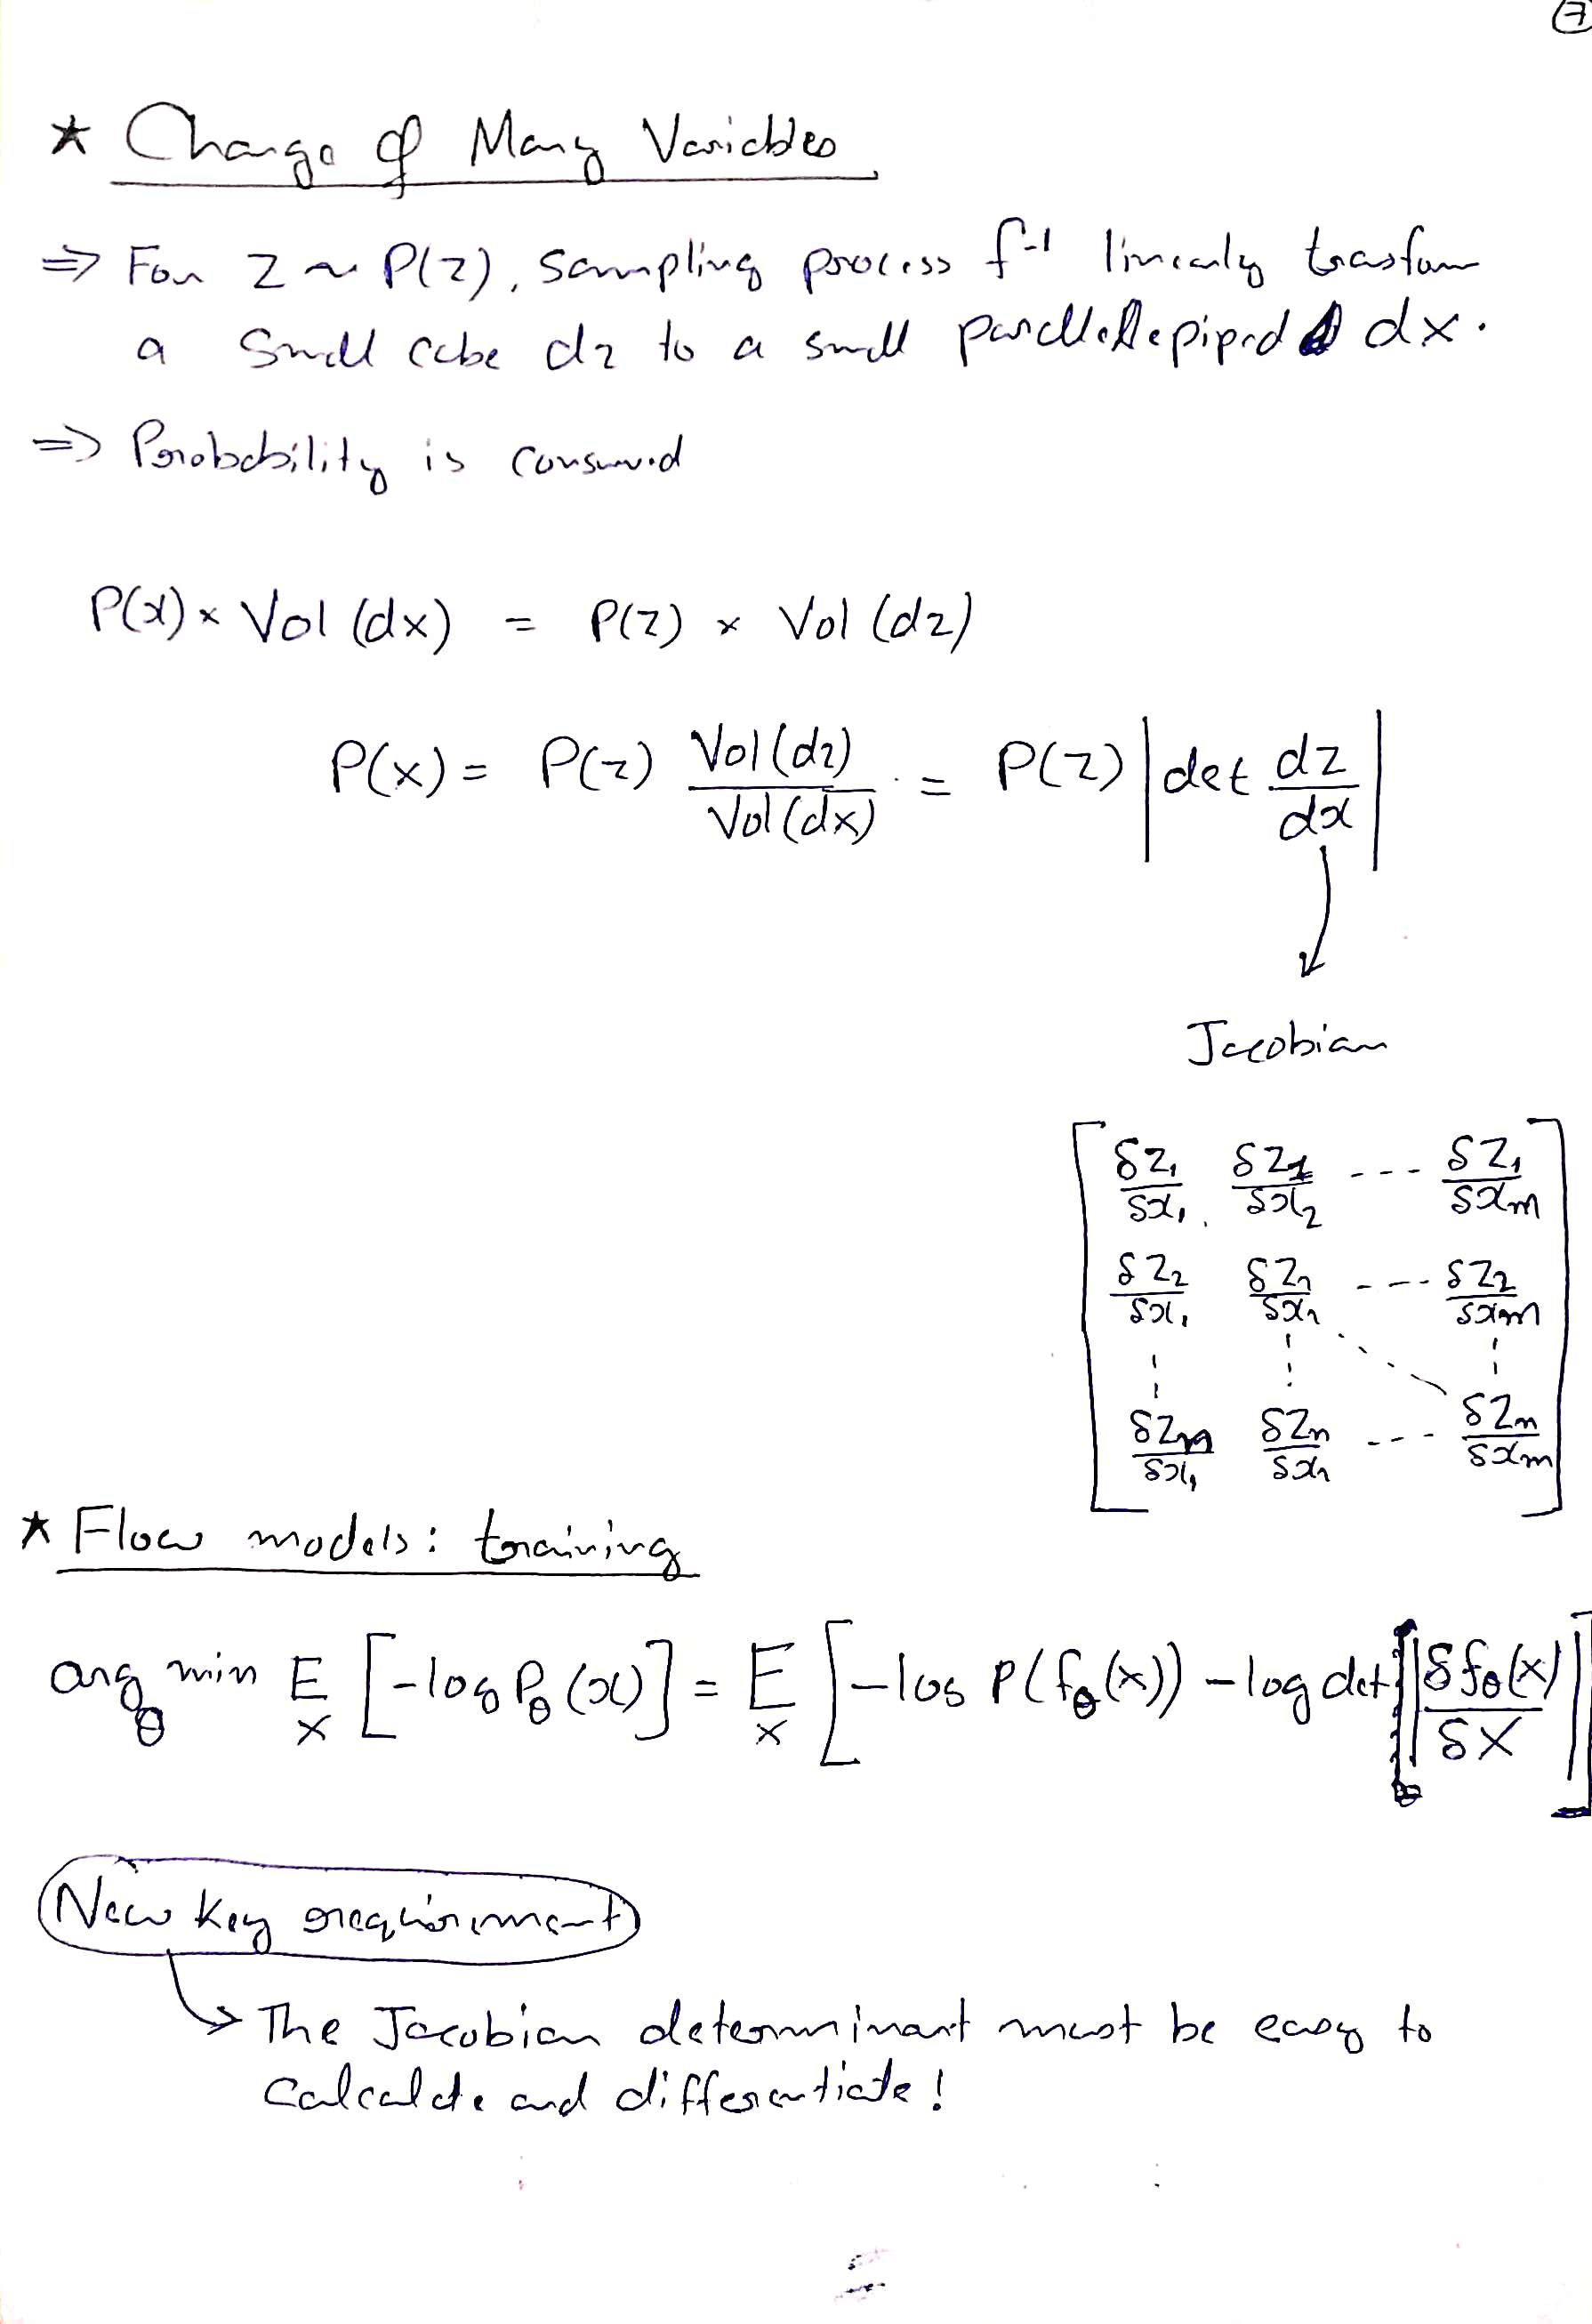 7
* Change of Many Variables
⇒ For z ~ P(z), sampling process f⁻¹ linearly trasform
a small cube dz to a small parallelepiped dx.
⇒ Probability is conserved
P(x) × Vol (dx) = P(z) × Vol (dz)
P(x) = P(z) Vol(dz)/Vol(dx) = P(z) |det dz/dx|
Jacobian
[ δz₁/δx₁ δz₁/δx₂ --- δz₁/δxₘ
δz₂/δx₁ δz₂/δx₂ --- δz₂/δxₘ
δzₙ/δx₁ δzₙ/δx₂ --- δzₙ/δxₘ ]
* Flow models: training
arg min θ E x [-log Pθ(x)] = E x [-log P(fθ(x)) - log det |δfθ(x)/δx|]
New key requirement
→ The Jacobian determinant must be easy to
calculate and differentiate!